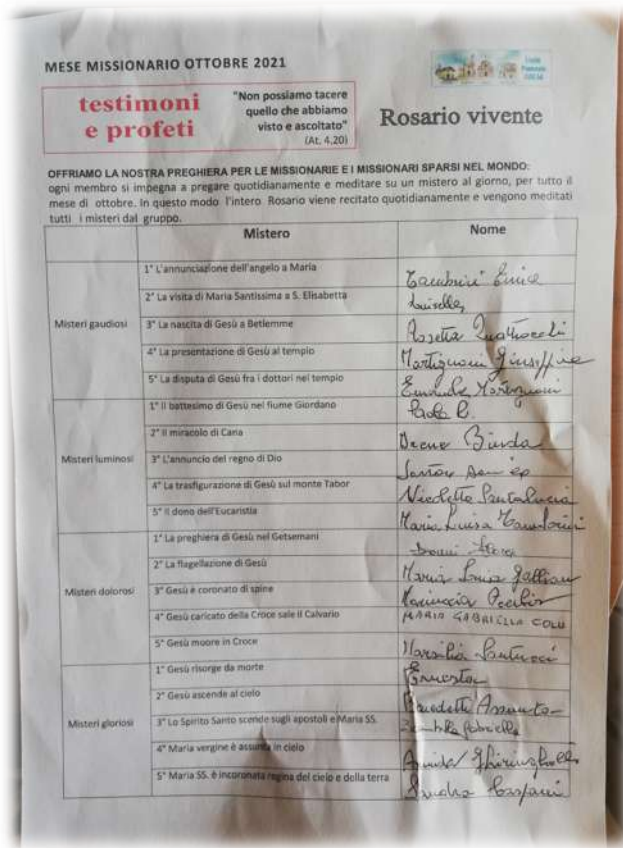 MESE MISSIONARIO OTTOBRE 2021
testimoni
e profeti
"Non possiamo tacere
quello che abbiamo
visto e ascoltato"
(At. 4,20)
Rosario vivente
OFFRIAMO LA NOSTRA PREGHIERA PER LE MISSIONARIE E I MISSIONARI SPARSI NEL MONDO:
ogni membro si impegna a pregare quotidianamente e meditare su un mistero al giorno, per tutto il
mese di ottobre. In questo modo l'intero Rosario viene recitato quotidianamente e vengono meditati
tutti i misteri dal gruppo.
Mistero Nome
Misteri gaudiosi
1° L'annunciazione dell'angelo a Maria
2° La visita di Maria Santissima a S. Elisabetta
3° La nascita di Gesù a Betlemme
4° La presentazione di Gesù al tempio Martignoni Giuseppina
5° La disputa di Gesù fra i dottori nel tempio Martignoni
Misteri luminosi
1° Il battesimo di Gesù nel fiume Giordano Paola
2° Il miracolo di Cana Binda
3° L'annuncio del regno di Dio
4° La trasfigurazione di Gesù sul monte Tabor Nicoletta Santalucia
5° Il dono dell'Eucaristia Maria Luisa
Misteri dolorosi
1° La preghiera di Gesù nel Getsemani
2° La flagellazione di Gesù Maria Luisa
3° Gesù è coronato di spine Mariuccia
4° Gesù caricato della Croce sale il Calvario MARIA GABRIELLA COLU
5° Gesù muore in Croce Marsilia Santucci
Misteri gloriosi
1° Gesù risorge da morte Ernesta
2° Gesù ascende al cielo Benedetta Assunta
3° Lo Spirito Santo scende sugli apostoli e Maria SS. Gabriella
4° Maria vergine è assunta in cielo
5° Maria SS. è incoronata regina del cielo e della terra Sandra